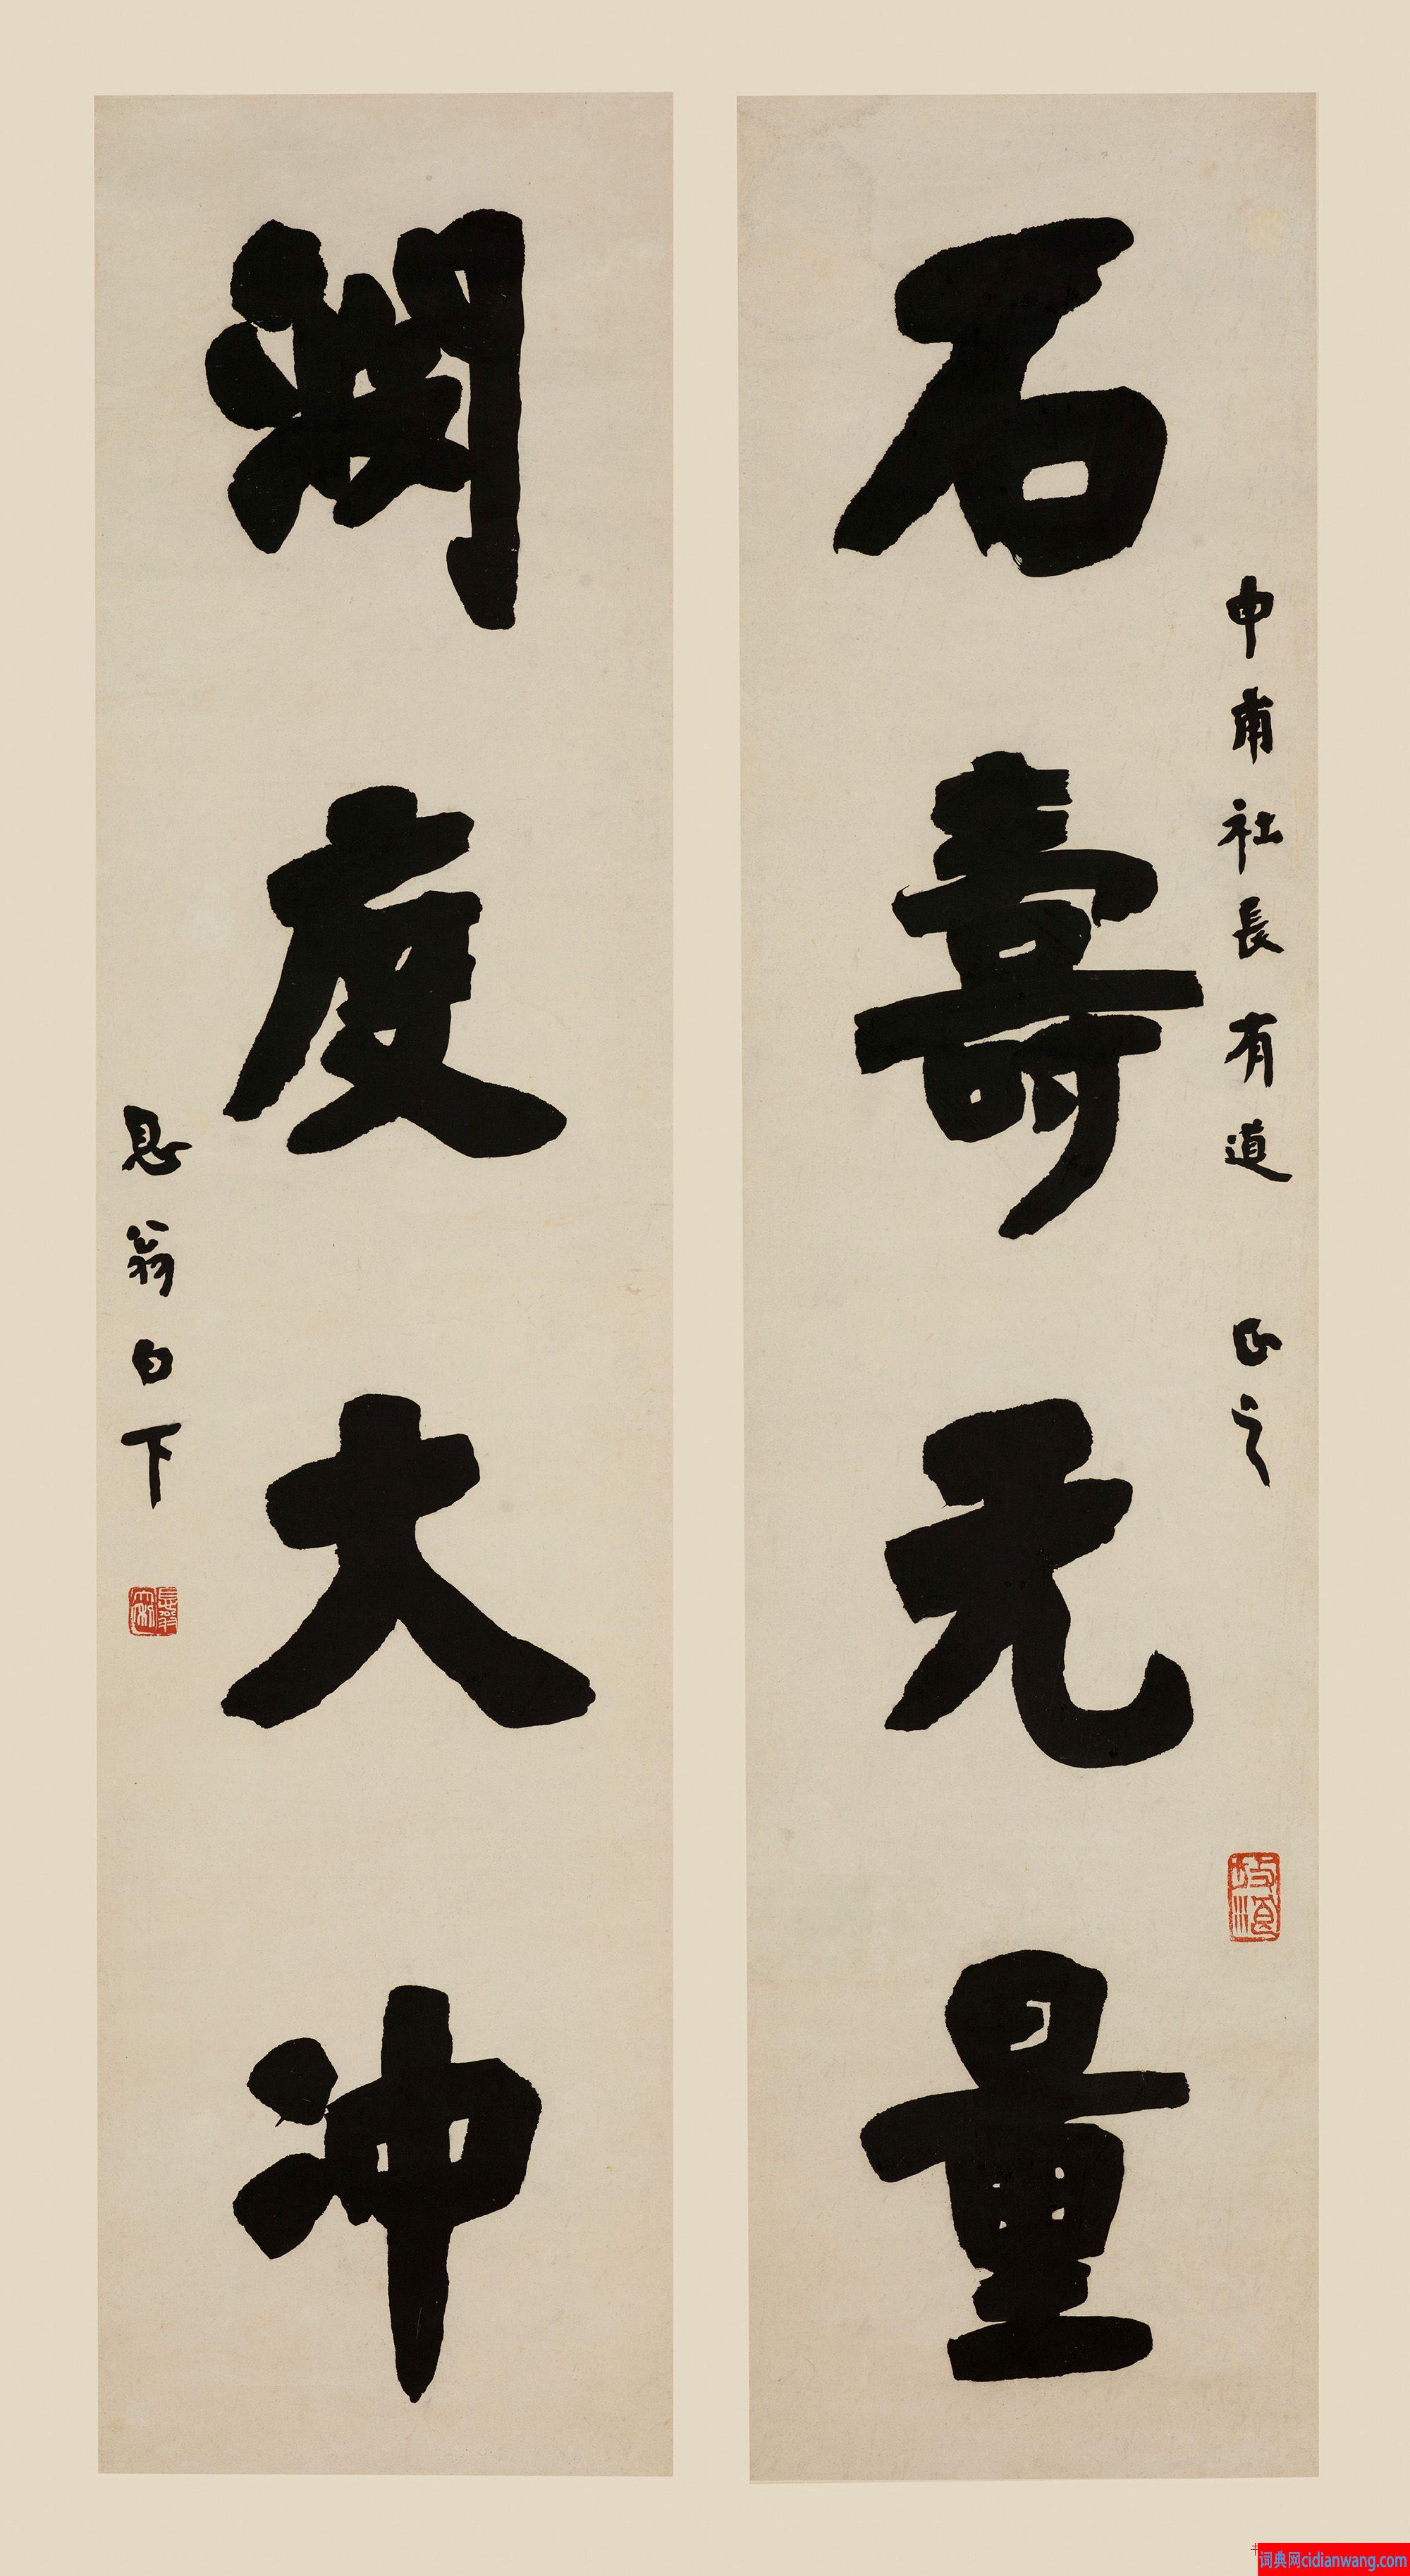 石壽无量
申甫社長有道 正之
渊度大冲
翁白下
词典网cidianwang.com